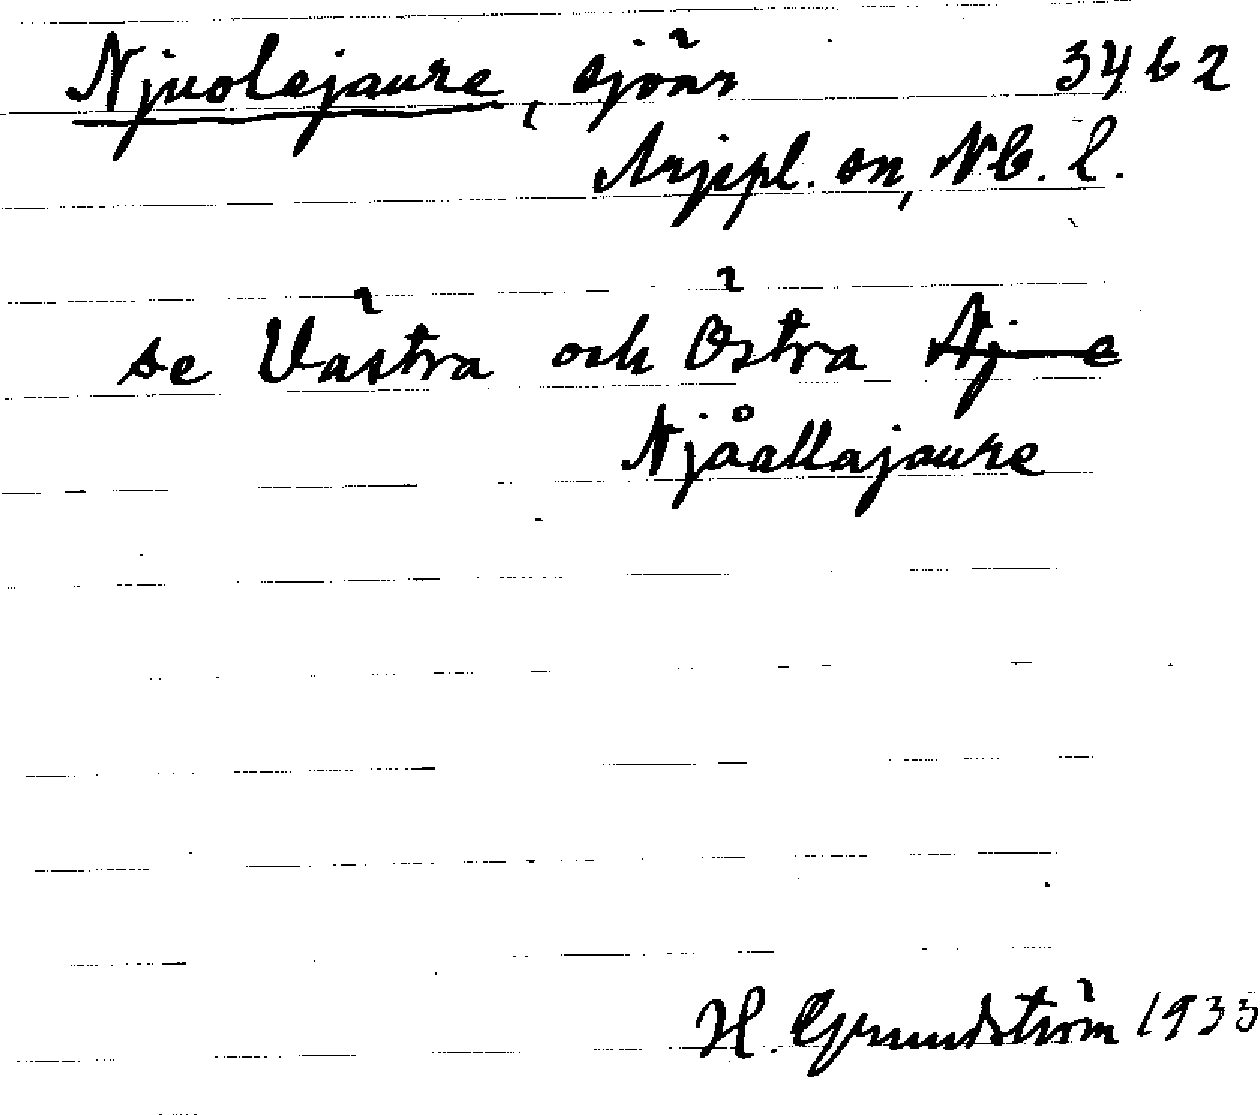 Njuolejaure, sjöar 3462
Arjepl. sn, Nb. l.
se Västra och Östra Nj—e
Njåallajaure
H. Grundström 1935